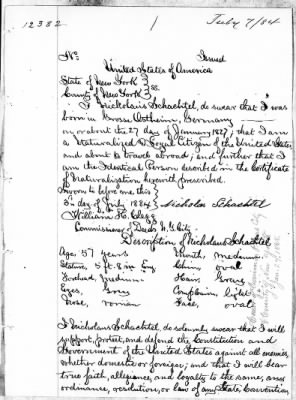 12382 1 July 7/84
No. Issued
United States of America
State of New York } ss.
County of New York }
I Nickolaus Schachtel, do swear that I was
born in Gross Ostheim, Germany
on or about the 27 day of January 1827; that I am
a Naturalized & Loyal Citizen of the United States,
and about to travel abroad; and further that I
am the Identical Person described in the Certificate
of Naturalization herewith presented.
Sworn to before me this }
3d day of July 1884 } Nicholas Schachtel
William H. Clegg
Commissioner of Deeds N.Y. City
Description of Nicholaus Schachtel
Age, 57 years Mouth, medium
Stature, 5 ft. 8 in Eng Chin, oval
Forehead, medium Hair,
Eyes, Complexion, light
Nose, roman Face, oval
I Nicholaus Schachtel, do solemnly swear that I will
support, protect, and defend the Constitution and
Government of the United States against all enemies,
whether domestic or foreign; and that I will bear
true faith, allegiance, and loyalty to the same, any
ordinance, resolution, or law of any State, Convention